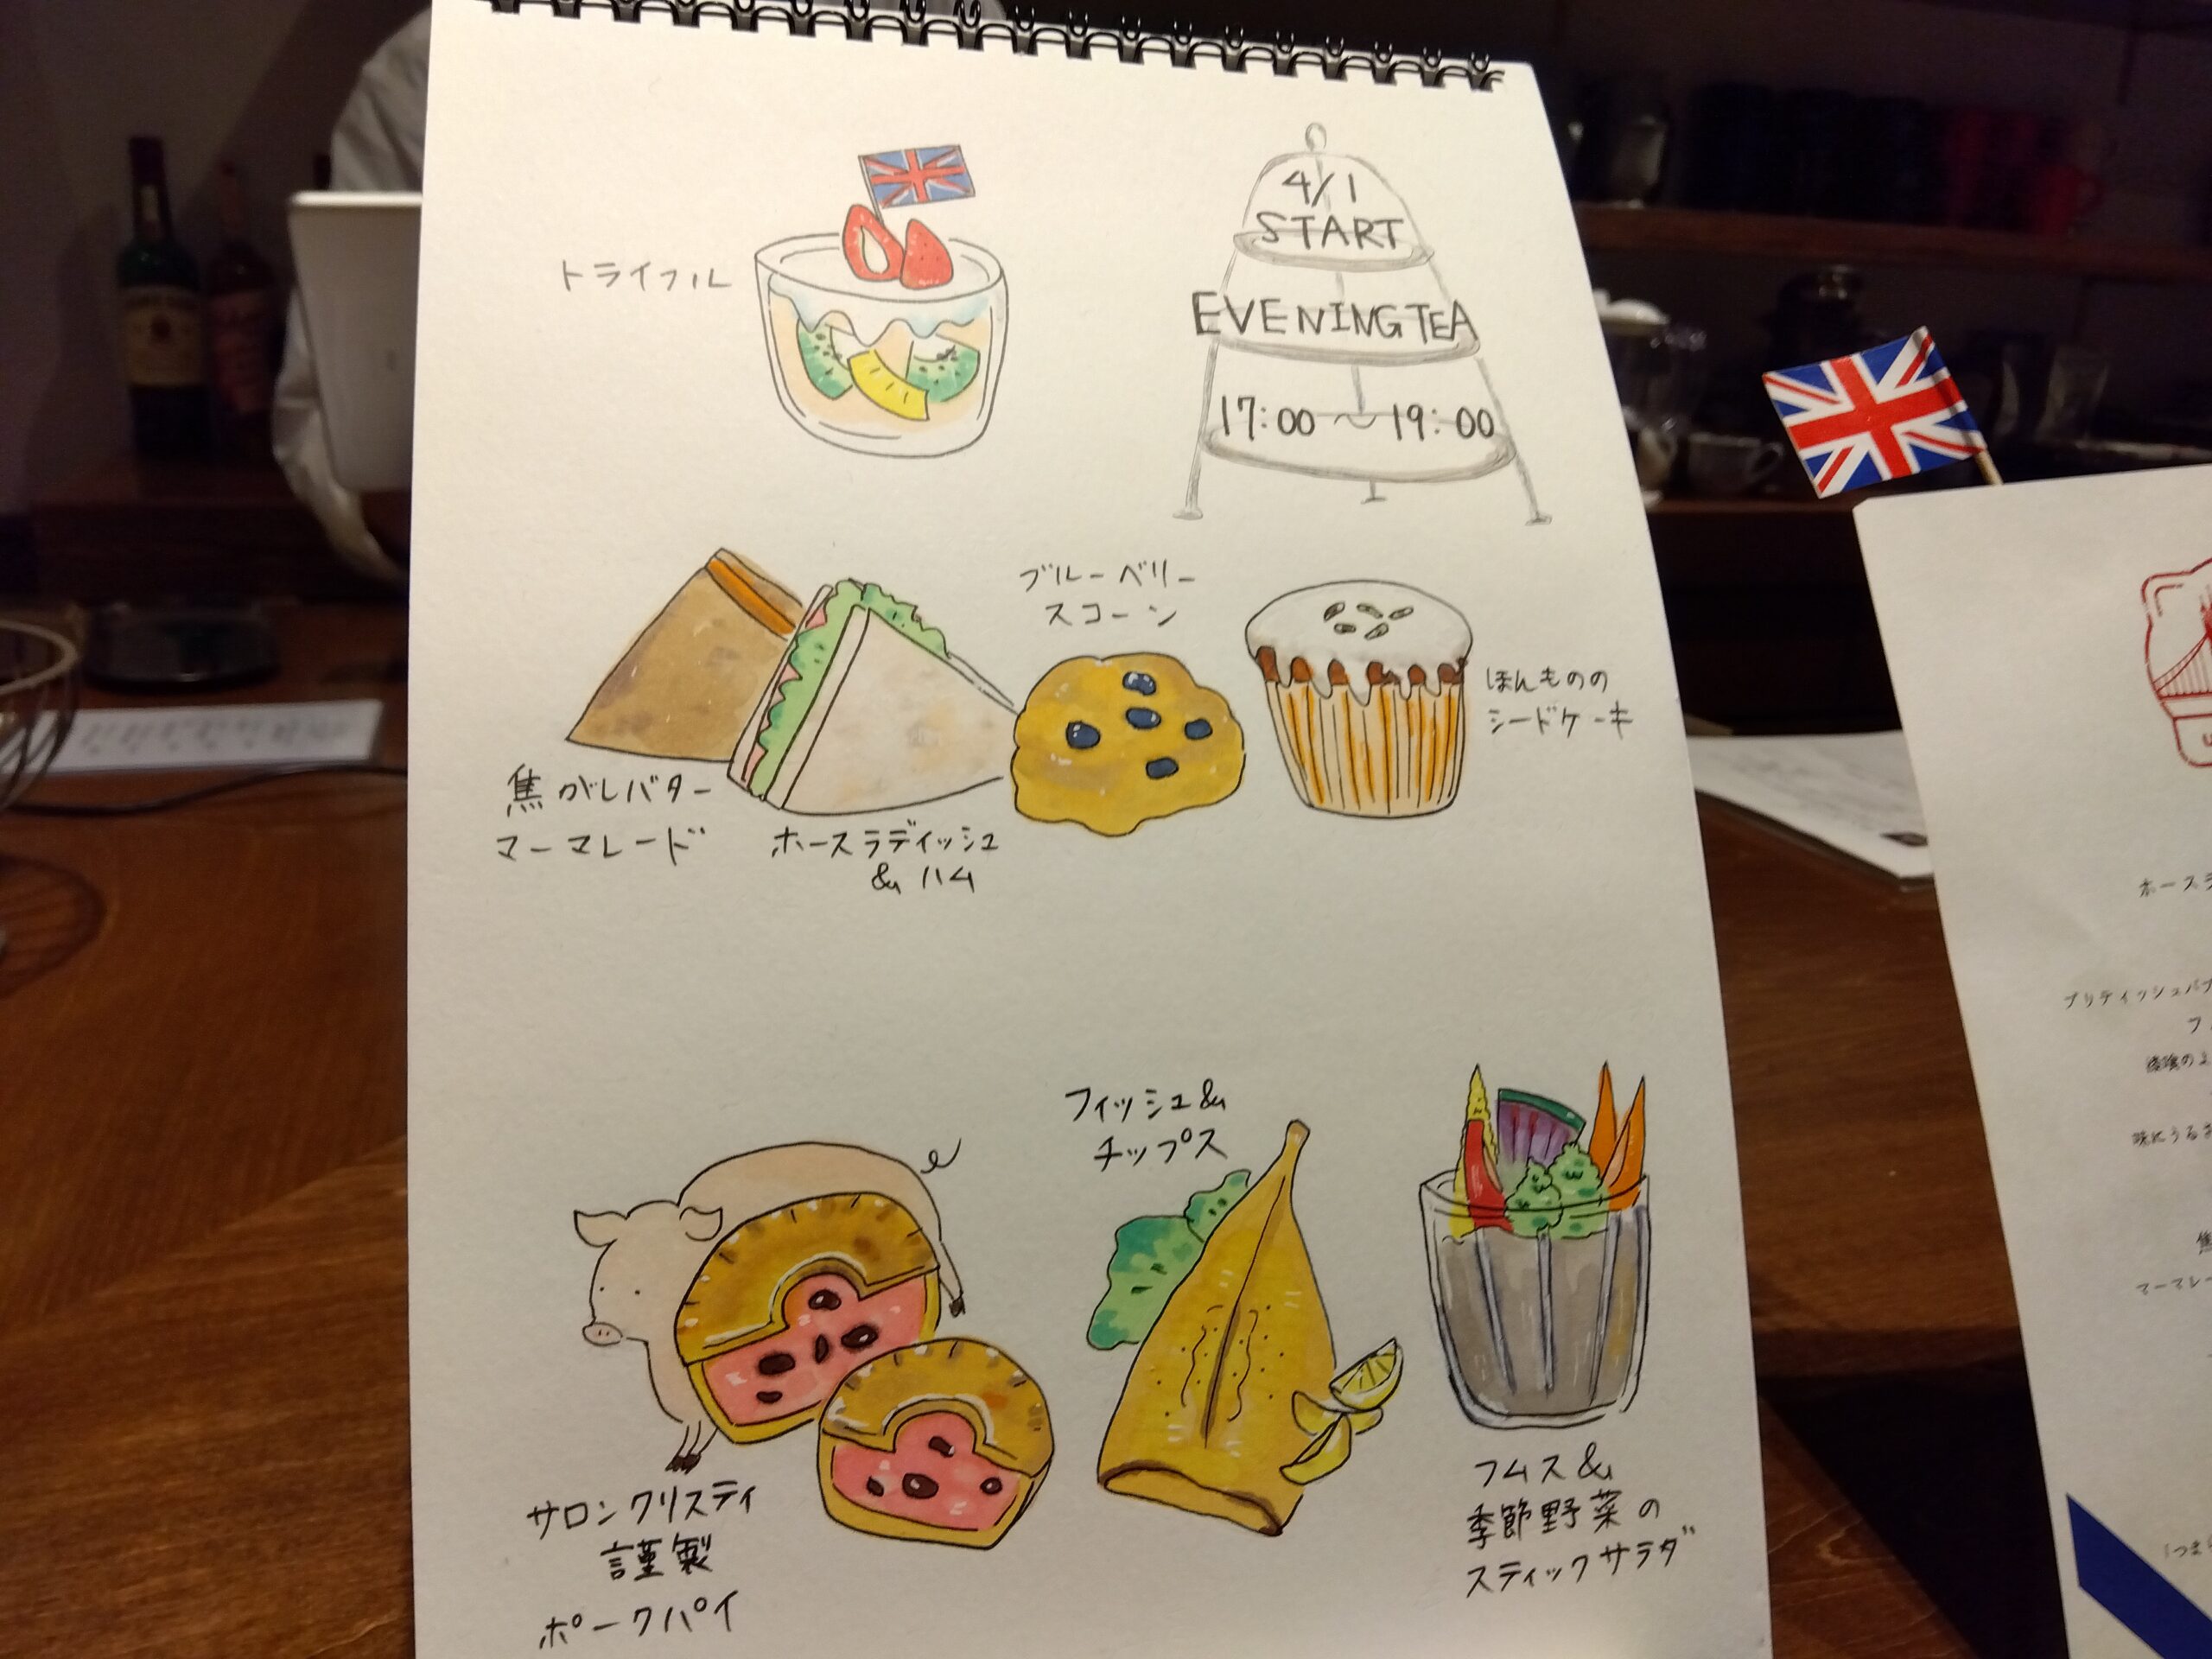 トライフル
4/1
START
EVENING TEA
17:00〜19:00
ブルーベリー
スコーン
ほんものの
シードケーキ
焦がしバター
マーマレード
ホースラディッシュ
& ハム
フィッシュ&
チップス
サロンクリスティ
謹製
ポークパイ
フムス&
季節野菜の
スティックサラダ
ホースラ
ブリティッシュパブ
フ
味にうるさ
焦
マーマレー